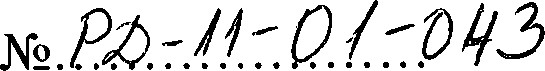 № РД-11-01-043